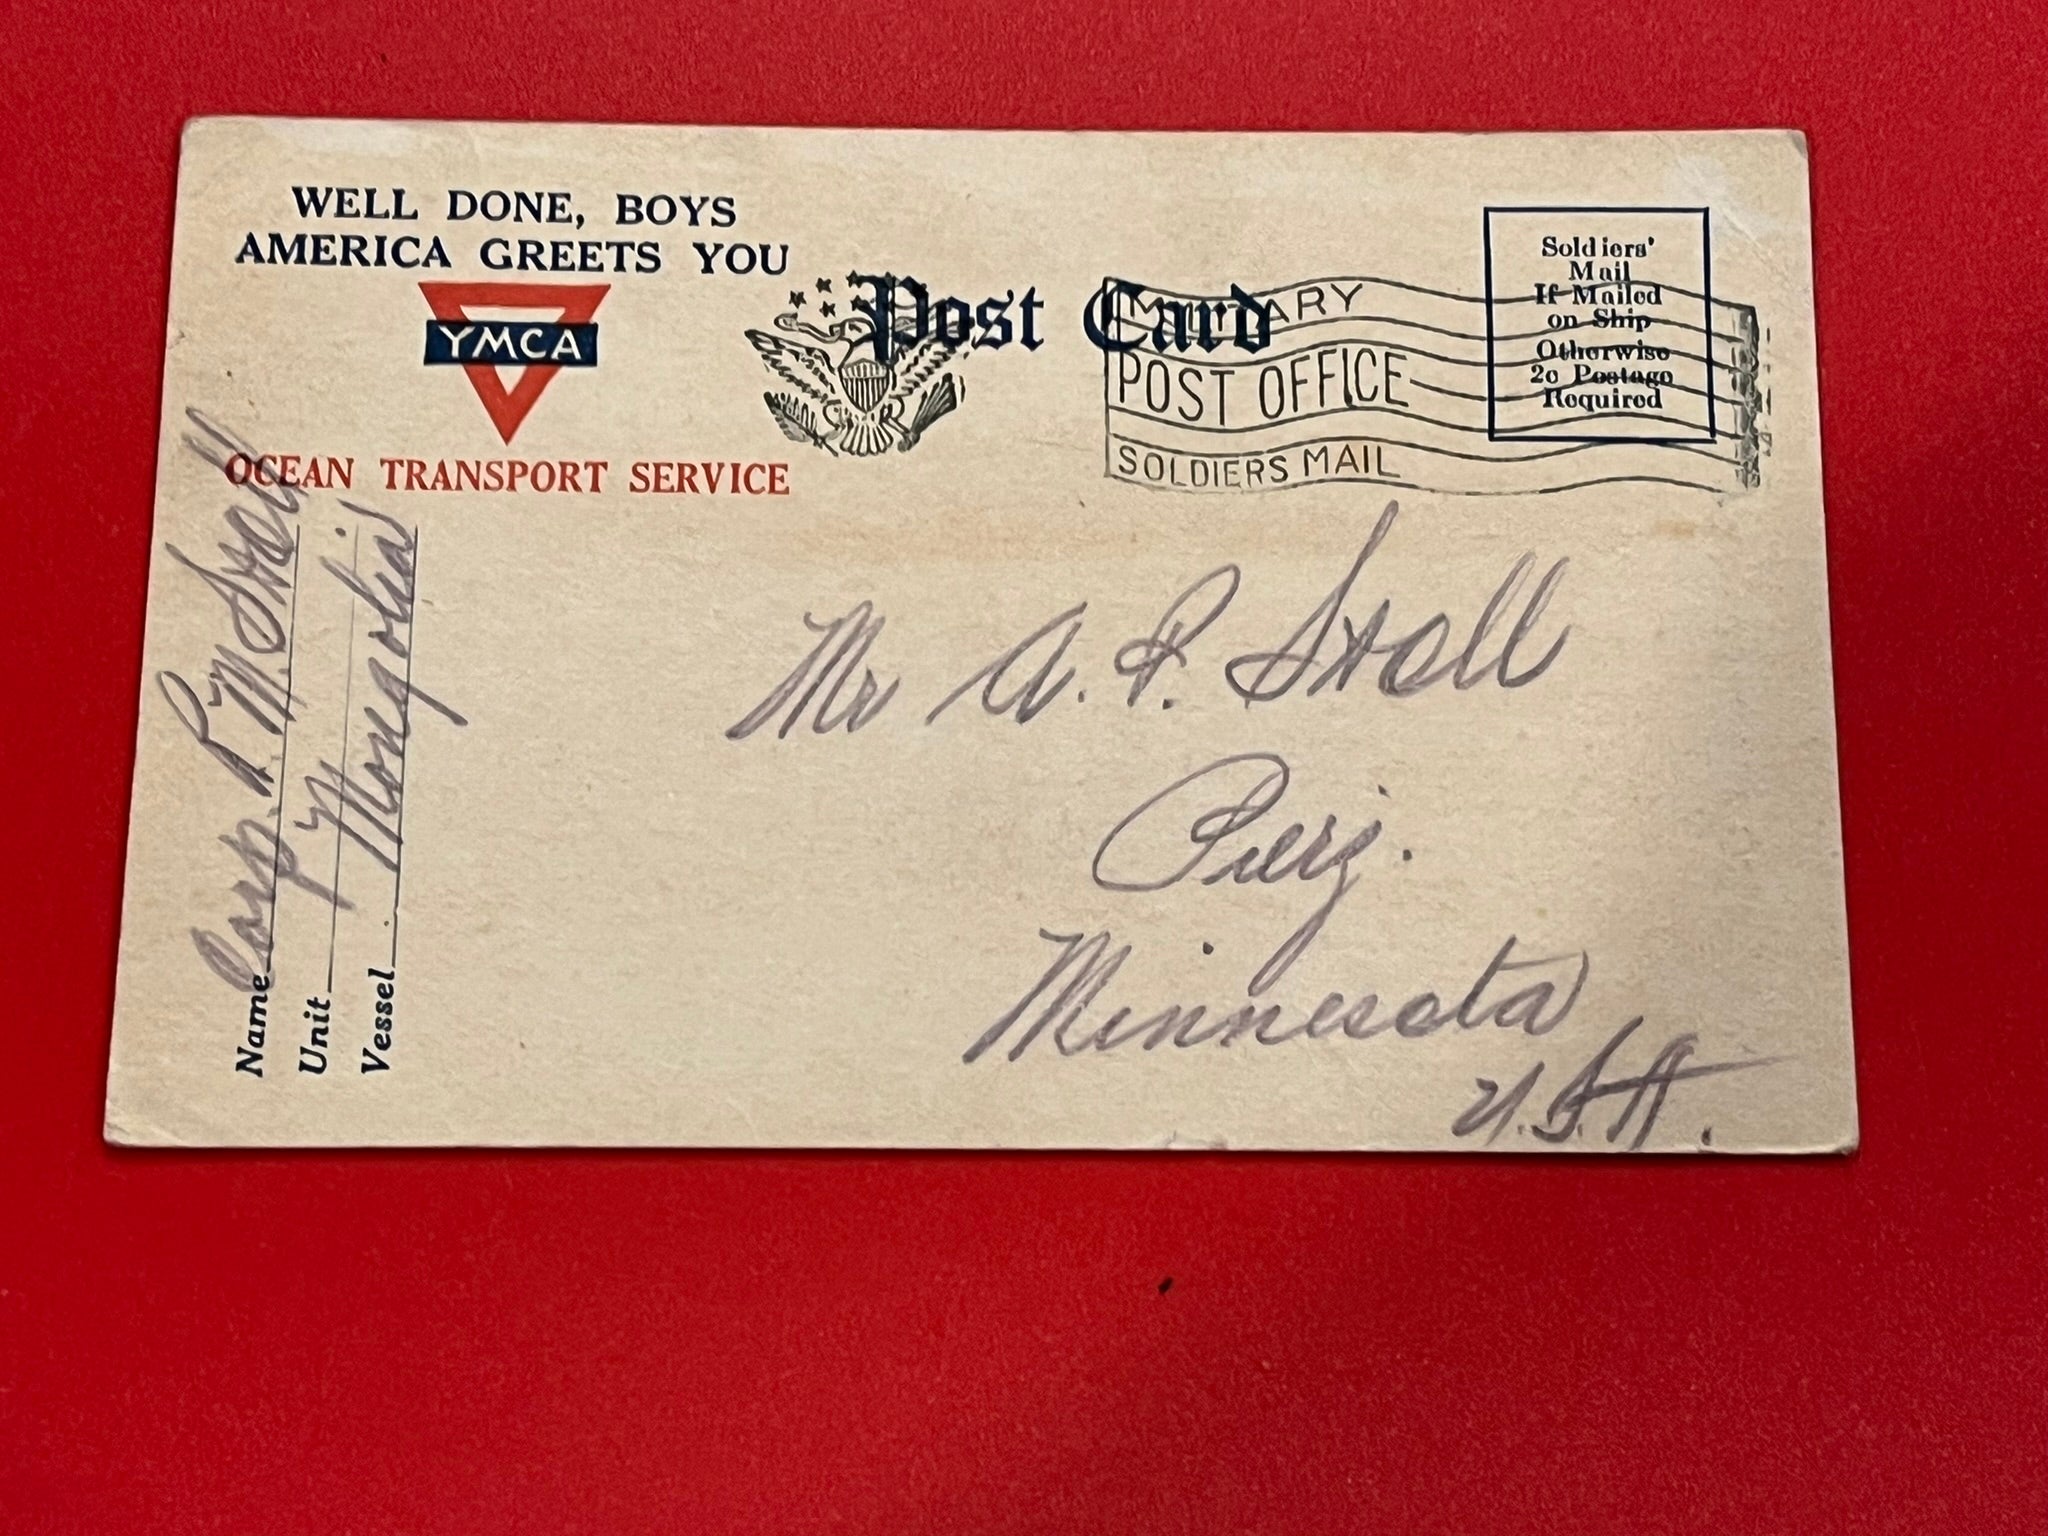 WELL DONE, BOYS
AMERICA GREETS YOU
YMCA
OCEAN TRANSPORT SERVICE
Post Card
MILITARY
POST OFFICE
SOLDIERS MAIL
Soldiers'
Mail
If Mailed
on Ship
Otherwise
2c Postage
Required
Name Corp. R. M. Stoll
Unit
Vessel Mongolia
Mr A. P. Stoll
Pierz.
Minnesota
U.S.A.